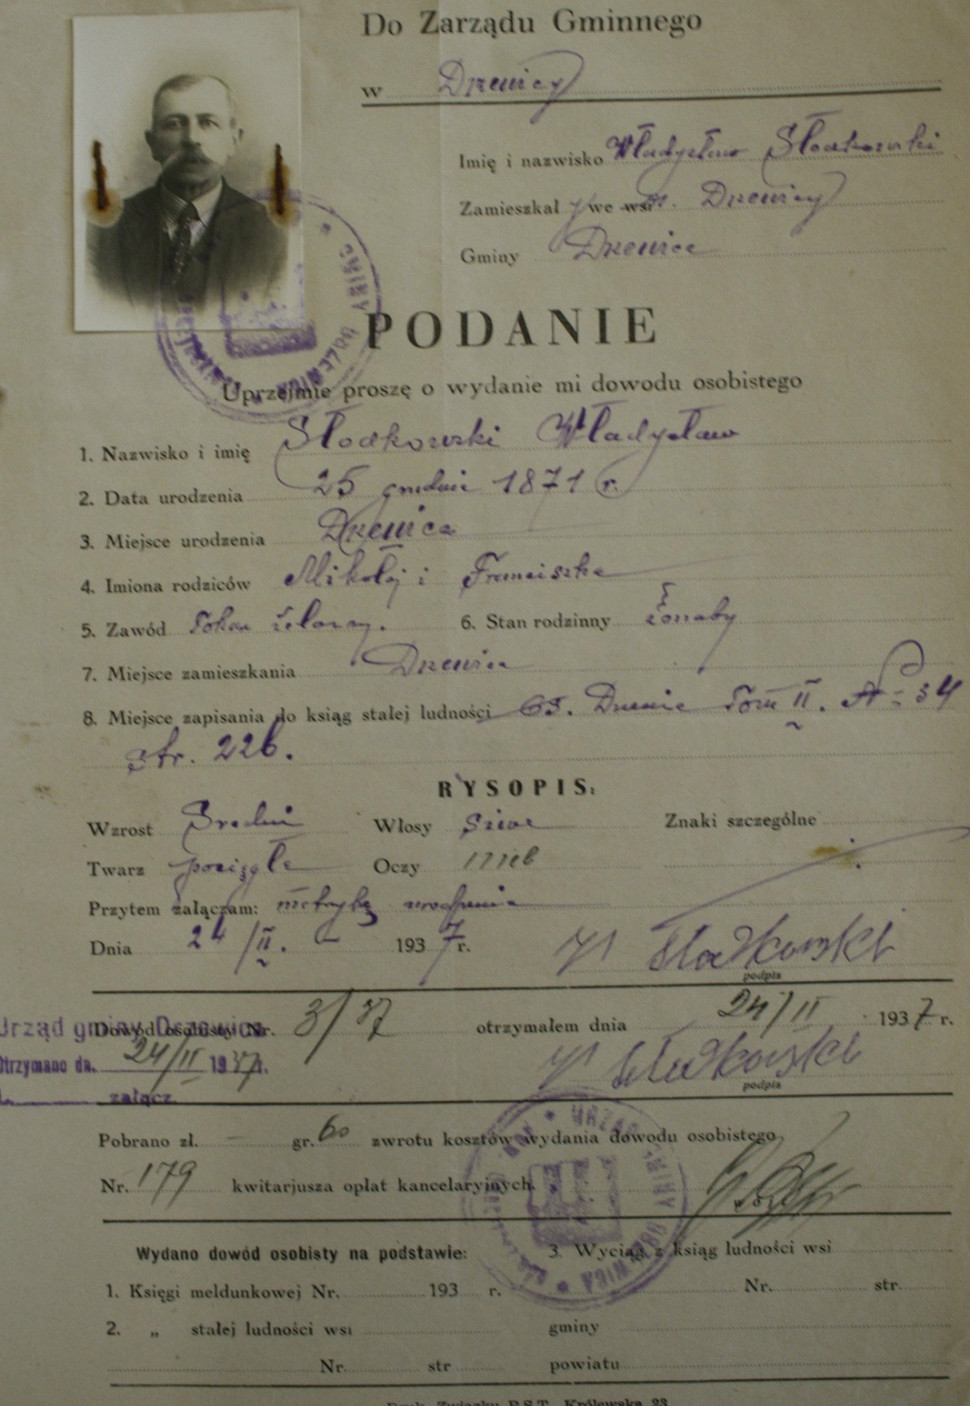 Do Zarządu Gminnego
w Drzewicy
Imię i nazwisko Władysław Słodkowski
Zamieszkał we wsi m. Drzewicy
Gminy Drzewica
PODANIE
Uprzejmie proszę o wydanie mi dowodu osobistego
1. Nazwisko i imię Słodkowski Władysław
2. Data urodzenia 25 grudnia 1871 r.
3. Miejsce urodzenia Drzewica
4. Imiona rodziców Mikołaj i Franciszka
5. Zawód Tokarz żelazny. 6. Stan rodzinny żonaty
7. Miejsce zamieszkania Drzewica
8. Miejsce zapisania do ksiąg stałej ludności Drzewica Tom II. № 34
str. 226.
RYSOPIS:
Wzrost Średni Włosy siwe Znaki szczególne
Twarz pociągła Oczy nieb
Przytem załączam: metrykę urodzenia
Dnia 24/II. – 1937 r. Wł Słodkowski
podpis
Dowód osobisty Nr. 3/37 otrzymałem dnia 24/II 1937 r.
Urząd gminy Drzewica
Otrzymano dn. 24/II 1937 r. Wł Słodkowski
załącz. podpis
Pobrano zł. – gr. 60 zwrotu kosztów wydania dowodu osobistego
Nr. 179 kwitarjusza opłat kancelaryjnych.
Wydano dowód osobisty na podstawie: 3. Wyciąg z ksiąg ludności wsi
1. Księgi meldunkowej Nr. 193 r. Nr. str.
2. „ stałej ludności wsi gminy
Nr. str powiatu
Druk. Związku P.S.T. Królewska 23